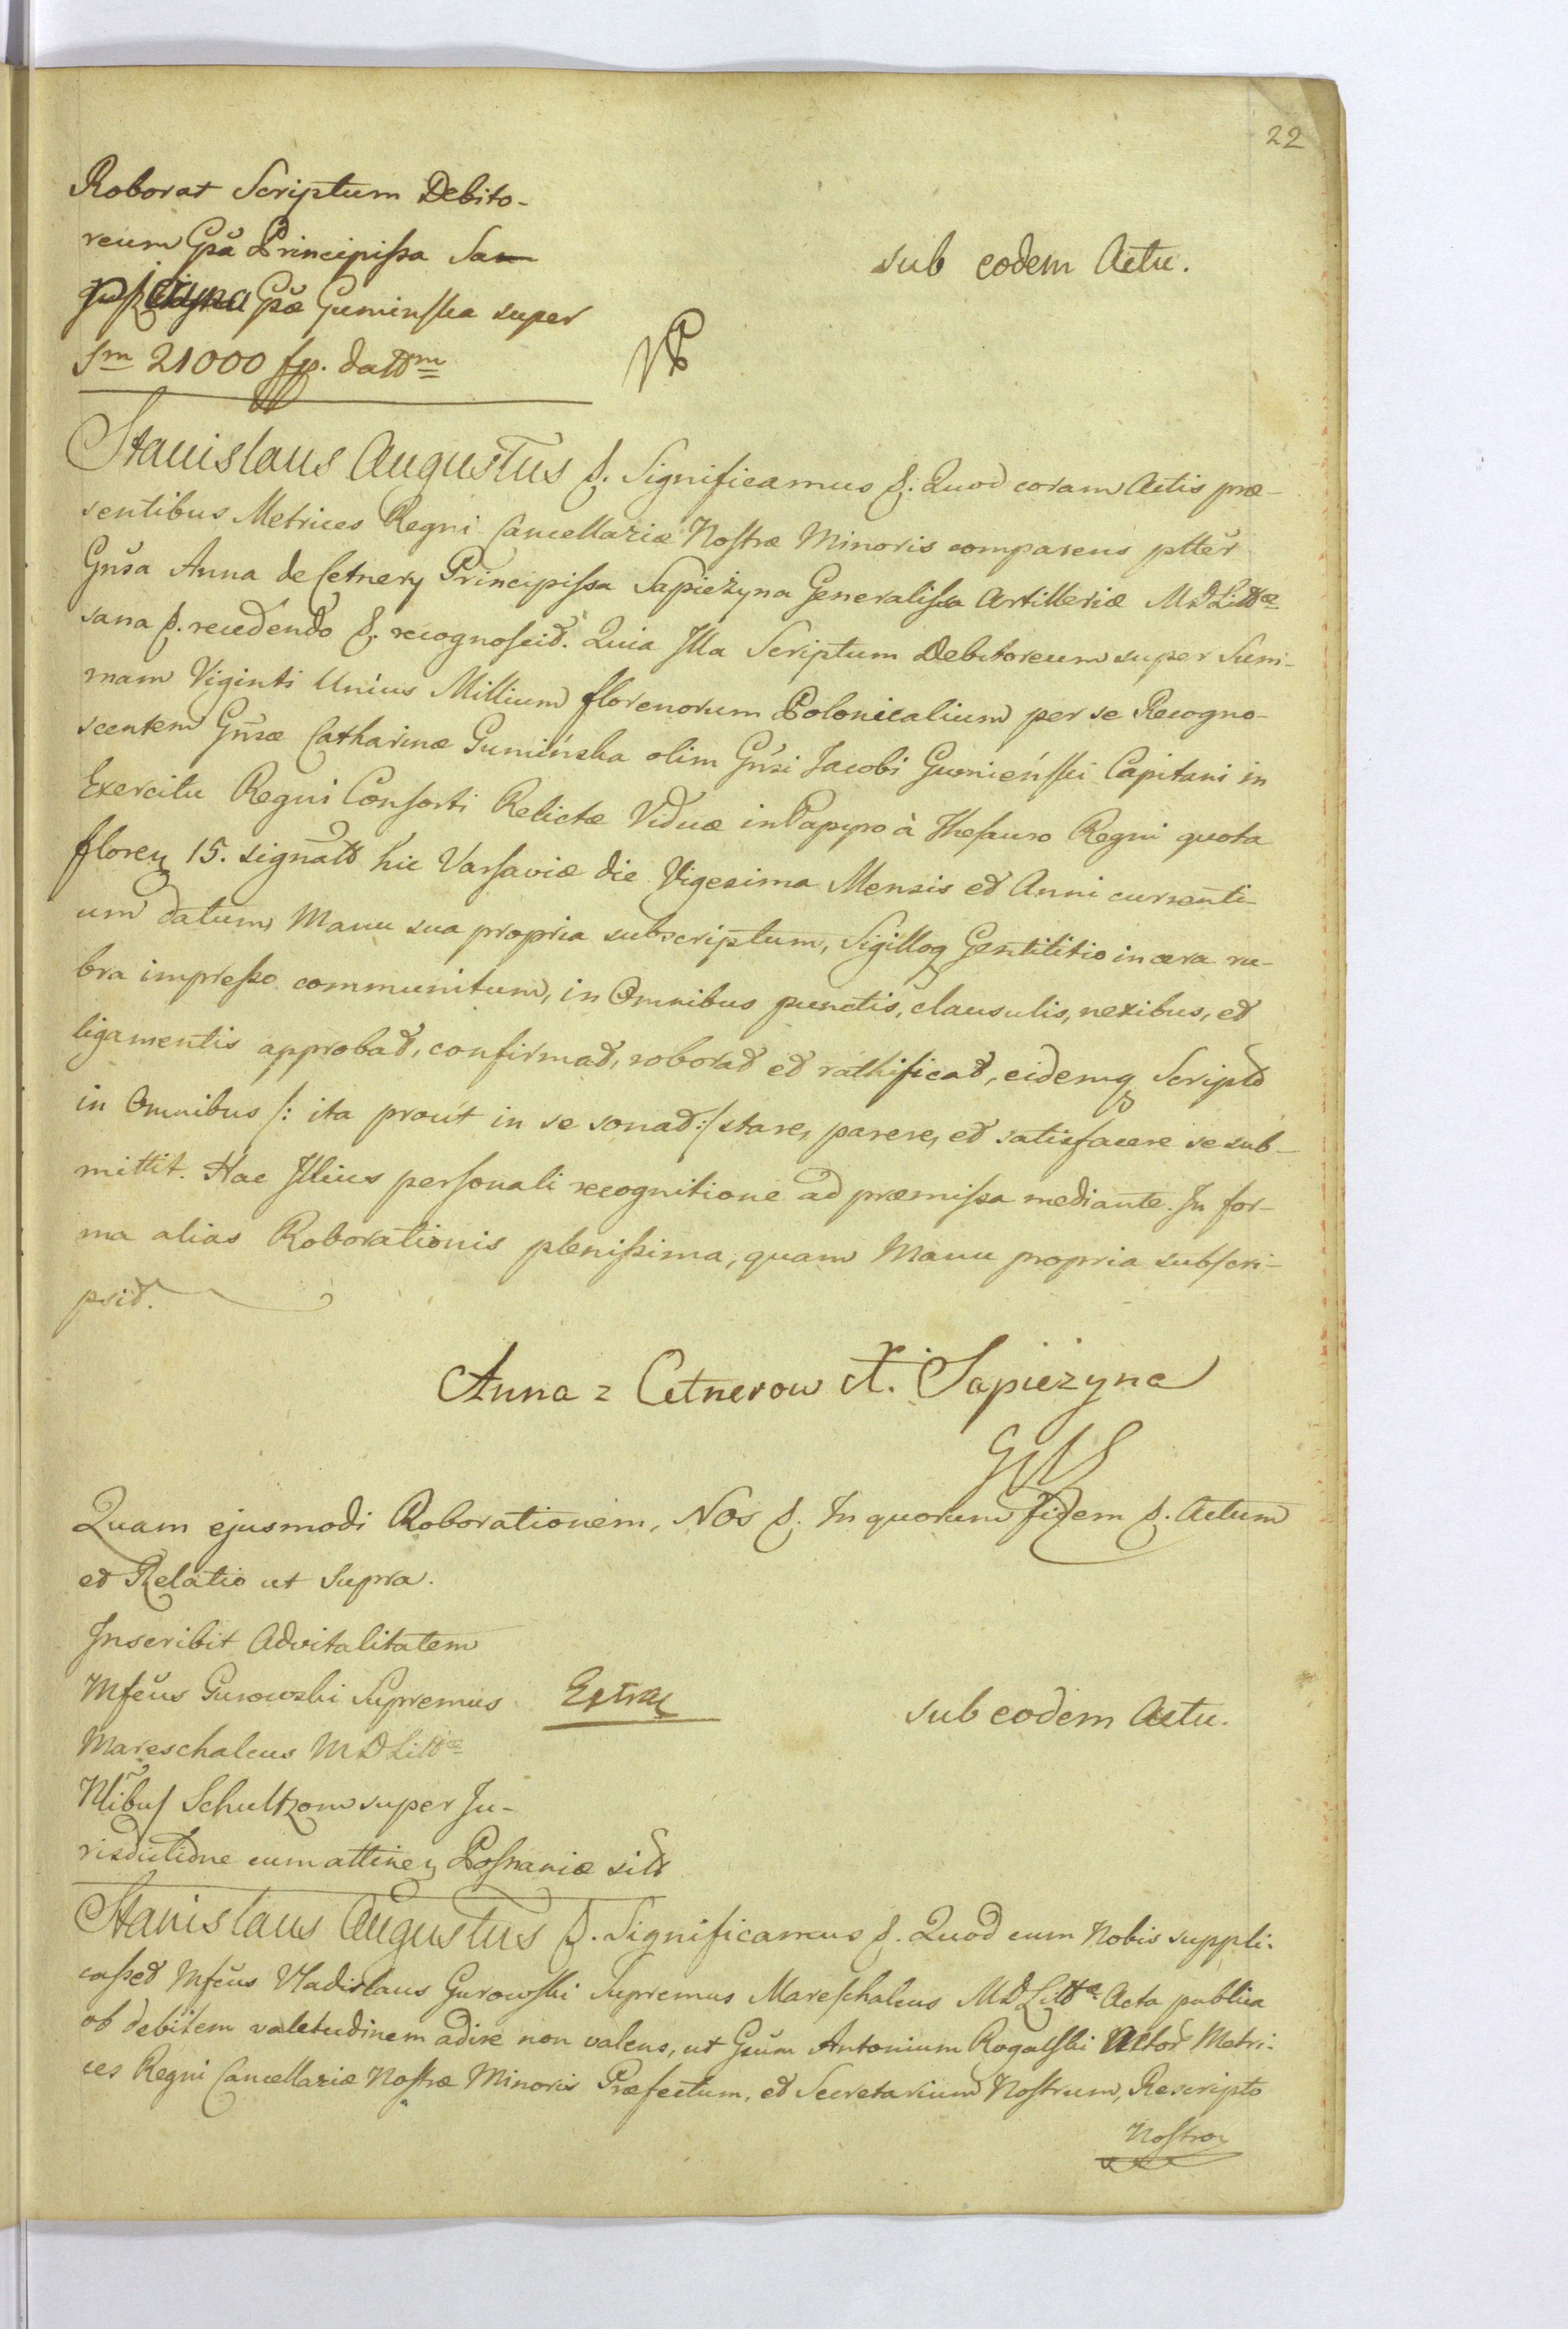 22
Roborat Scriptum Debito-
reum Gsa Principissa Sa
Gsæ Guminska super
Sm 21000 fp. dattm
sub eodem Actu.
Stanislaus Augustus &. Significamus &. Quod coram Actis præ-
sentibus Metrices Regni Cancellariæ Nostræ Minoris comparens ptter
Gnsa Anna de Cetnery Principissa Sapieżyna Generalissa Artilleriæ MDLittæ
sana &. recedendo &. recognoscit. Quia Illa Scriptum Debitoreum super Sum-
mam Viginti Unius Millium florenorum Polonicalium per se Recogno-
scentem Gnsæ Catharinæ Gumińska olim Gnsi Jacobi Gumieński Capitani in
Exercitu Regni Consorti Relictæ Viduæ in Papyro à Thesauro Regni quota
floren 15. signatt hic Varsaviæ die Vigesima Mensis et Anni currenti-
um datum, Manu sua propria subscriptum, Sigilloq Gentilitio in cera ru-
bra impresso communitum, in Omnibus punctis, clausulis, nexibus, et
ligamentis approbat, confirmat, roborat et rathificat, eidemq Scripto
in Omnibus /: ita prout in se sonat :/ stare, parere, et satisfacere se sub-
mittit. Hac Illius personali recognitione ad præmissa mediante. In for-
ma alias Roborationis plenissima, quam Manu propria subscri-
psit.
Anna z Cetnerow X. Sapieżyna
Quam ejusmodi Roborationem, Nos &. In quorum fidem &. Actum
et Relatio ut Supra.
Inscribit Advitalitatem
Mfcus Gurowski Supremus
Mareschalcus MDLittæ
Nlibus Schultzom super Ju-
risdictione cum attinen Posnaniæ sitt
Extrax
sub eodem Actu.
Stanislaus Augustus &. Significamus &. Quod cum Nobis suppli-
casset Mfcus Vladislaus Gurowski Supremus Mareschalcus MDLittæ Acta publica
ob debilem valetudinem adire non valens, ut Gsum Antonium Rogalski Actor Metri-
ces Regni Cancellariæ Nostræ Minoris Præfectum, et Secretarium Nostrum, Rescripto
Nostro